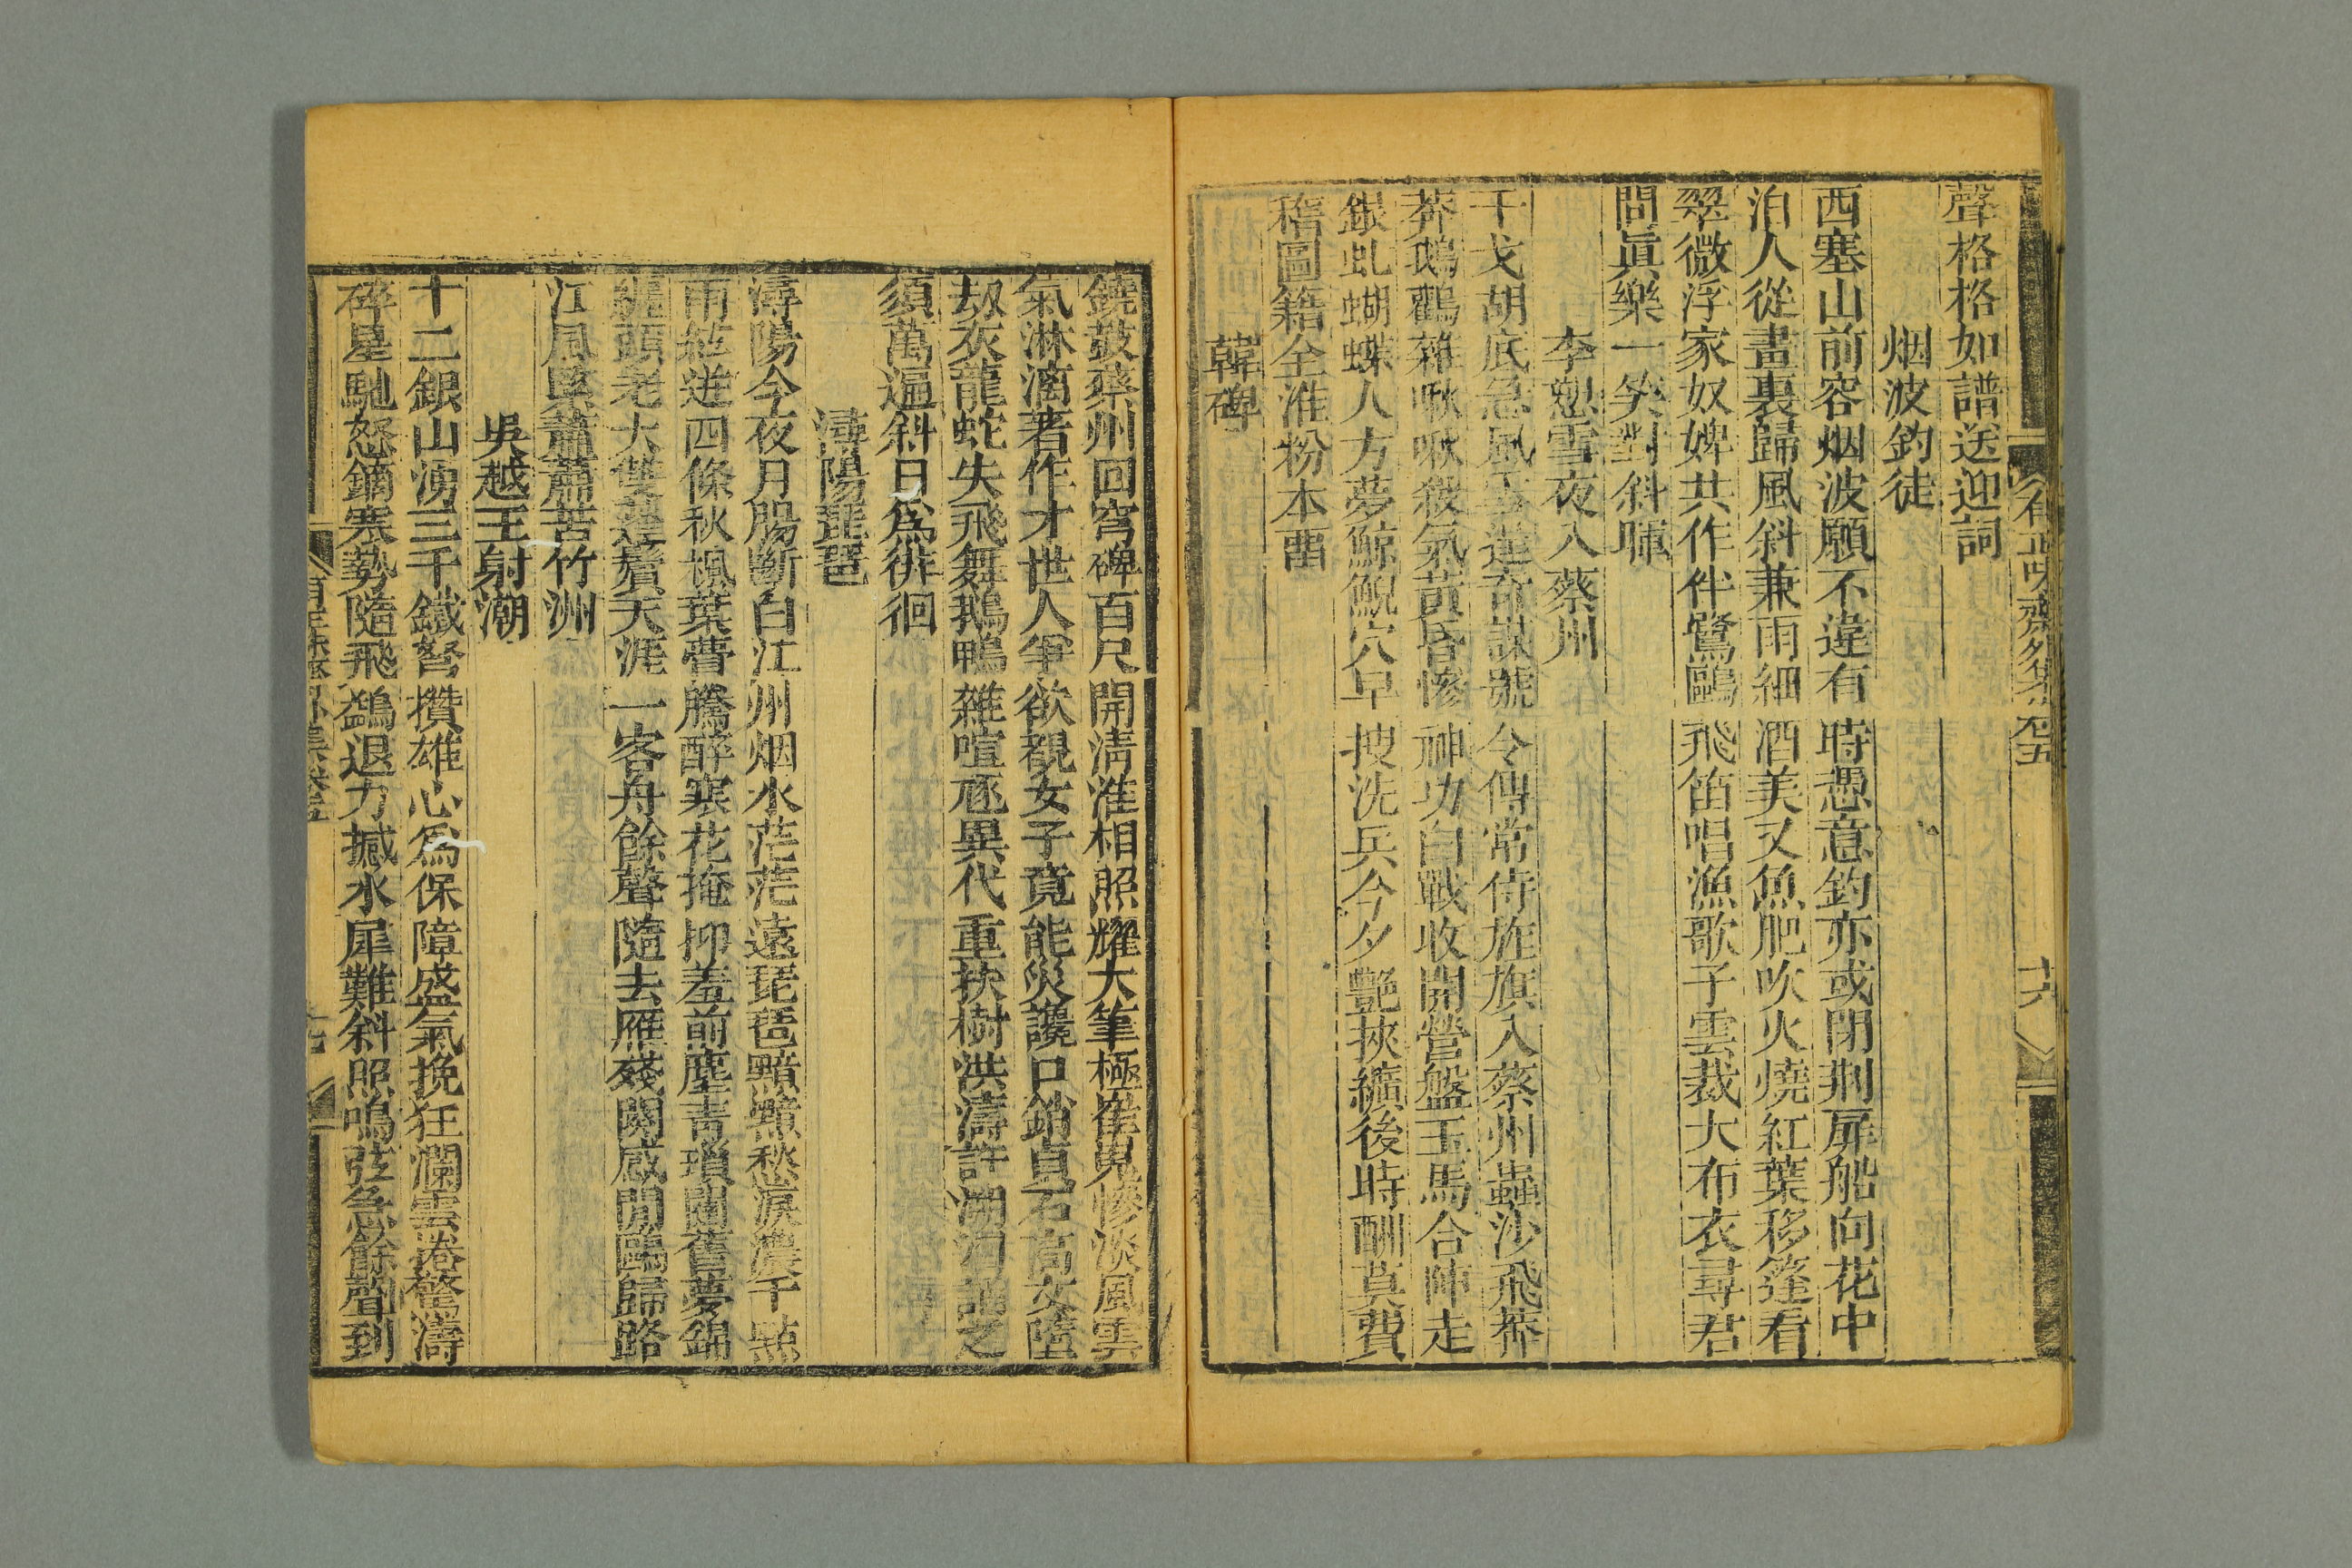 聲格格如譜送迎詞
烟波釣徒
西塞山前容烟波願不違有時憑意釣亦或閉荆扉船向花中
泊人從畫裏歸風斜兼雨細酒美又魚肥吹火燒紅葉移篷看
翠微浮家奴婢共作伴鷺鷗飛笛唱漁歌子雲裁大布衣尋君
問眞樂一笑對斜暉
李愬雪夜入蔡州
干戈胡底急風雪運奇謀號令傳常侍旌旗入蔡州蟲沙飛莽
莽鵝鸛雜啾啾殺氣黃昏慘神功白戰收開營盤玉馬合陣走
銀虬蝴蝶人方夢鯨鯢穴早搜洗兵今夕艷挾纊後時酬莫費
稽圖籍全淮粉本畱
韓碑
鐃鼓蔡州回穹碑百尺開淸淮相照耀大筆極崔嵬慘淡風雲
氣淋漓著作才世人爭欲覩女子竟能災讒口銷貞石高文墮
劫灰龍蛇失飛舞鵝鴨雜喧豗異代重挾樹洪濤許溯洄誦之
須萬遍斜日爲徘徊
潯陽琵琶
潯陽今夜月腸斷白江州烟水茫茫遠琵琶黯黯愁淚濃千點
雨絃迸四條秋楓葉瞢騰醉寒花掩抑羞前塵靑瑣闥舊夢錦
纏頭老大雙蓬鬢天涯一客舟餘聲隨去雁殘闋感閒鷗歸路
江風緊蕭蕭苦竹洲
吳越王射潮
十二銀山湧三千鐵弩攢雄心爲保障盛氣挽狂瀾雲捲驚濤
碎星馳怒鏑寒勢隨飛鷁退力撼水犀難斜照鳴弦急餘聲到
有正味齋外集卷五
十六